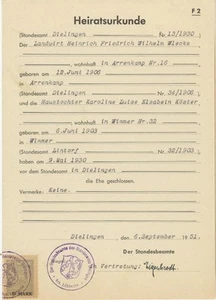 F 2
Heiratsurkunde
(Standesamt Dielingen Nr. 13/1930)
Der Landwirt Heinrich Friedrich Wilhelm
wohnhaft in Arrenkamp Nr.16
geboren am 12.Juni 1906
in Arrenkamp
(Standesamt Dielingen Nr. 34/1906)
und die Haustochter Karoline Luise Elsabein
wohnhaft in Wimmer Nr.32
geboren am 6.Juni 1903
in Wimmer
(Standesamt Lintorf Nr. 32/1903)
haben am 9.Mai 1930
vor dem Standesamt in Dielingen
die Ehe geschlossen.
Vermerke. Keine.
Dielingen, den 6.September 1951
Der Standesbeamte
In Vertretung:
MARK